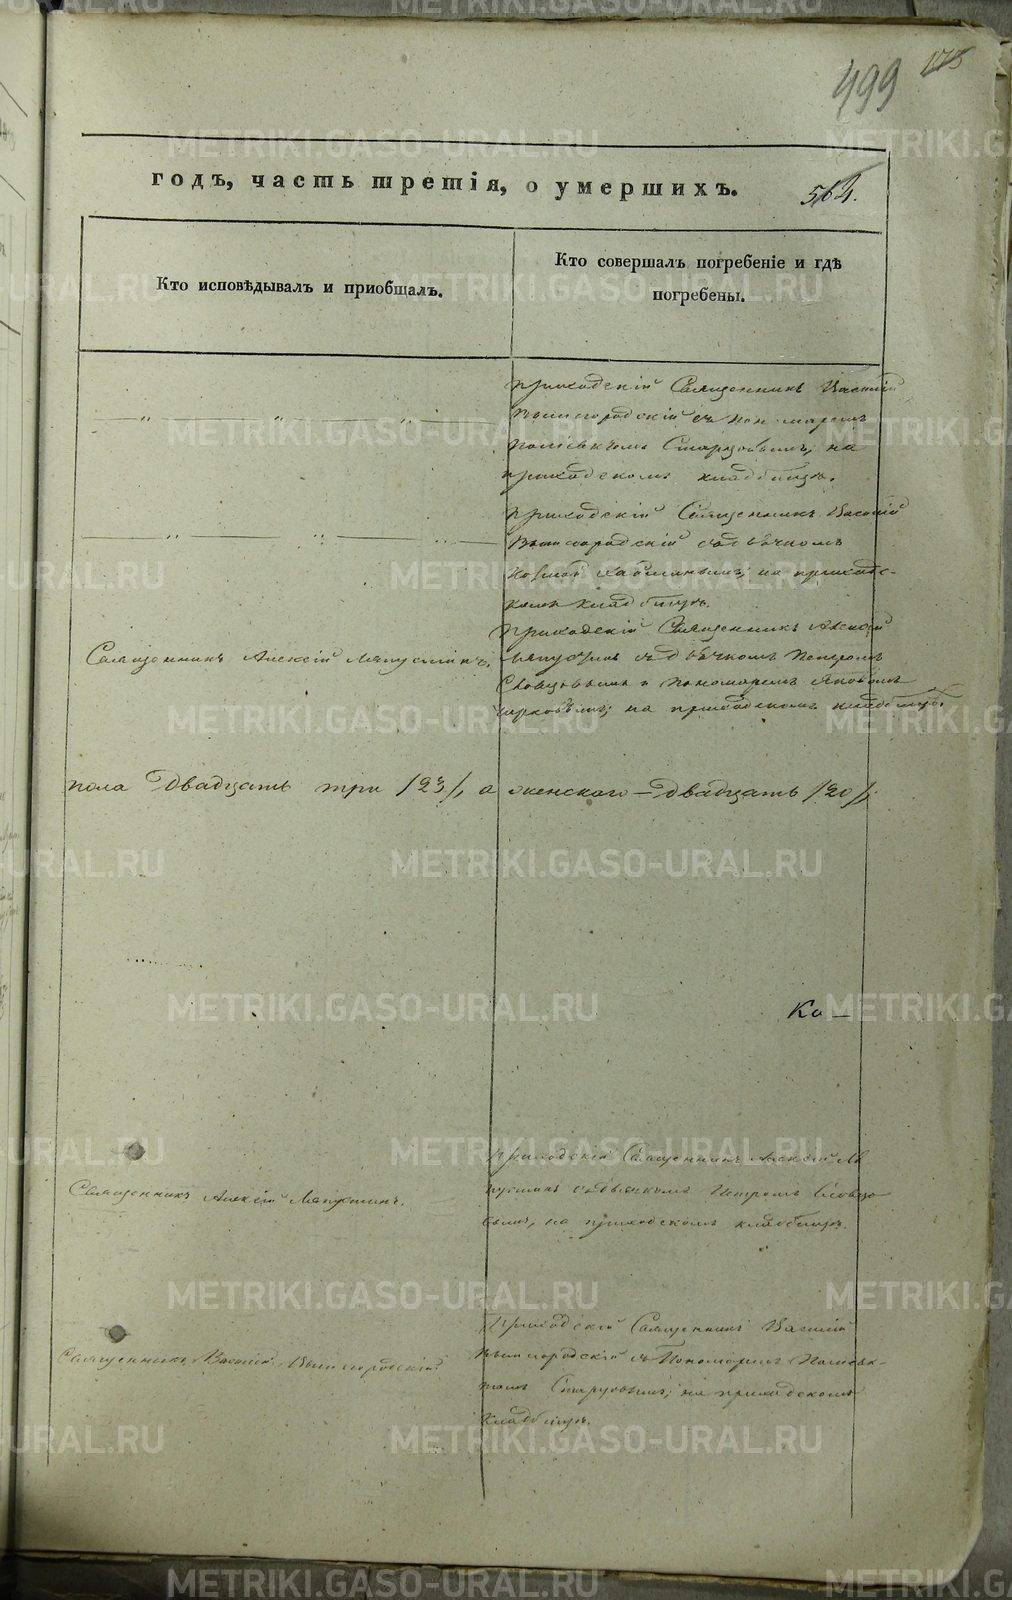 499
годъ, часть третія, о умершихъ.
564.
Кто исповѣдывалъ и приобщалъ.
Кто совершалъ погребеніе и гдѣ
погребены.
Приходскій Священникъ Василій
Вышгородскій съ Пономаремъ
на
приходскомъ кладбищѣ.
Приходскій Священникъ Василій
Вышгородскій съ дьячкомъ
на приход-
скомъ кладбищѣ.
Священникъ Алексій Ляпустинъ.
Приходскій Священникъ Алексій
Ляпустинъ съ дьячкомъ Петромъ
Словцовымъ и Пономаремъ Яковомъ
на приходскомъ кладбищѣ.
пола двадцать три /23/, а женскаго – двадцать /20/.
Ко –
Священникъ Алексій Ляпустинъ.
Приходскій Священникъ Алексій Ля
пустинъ съ дьячкомъ Петромъ Словцо
вымъ, на приходскомъ кладбищѣ.
Священникъ Василій Вышгородскій.
Приходскій Священникъ Василій
Вышгородскій съ Пономаремъ
на приходскомъ
кладбищѣ.
METRIKI.GASO-URAL.RU